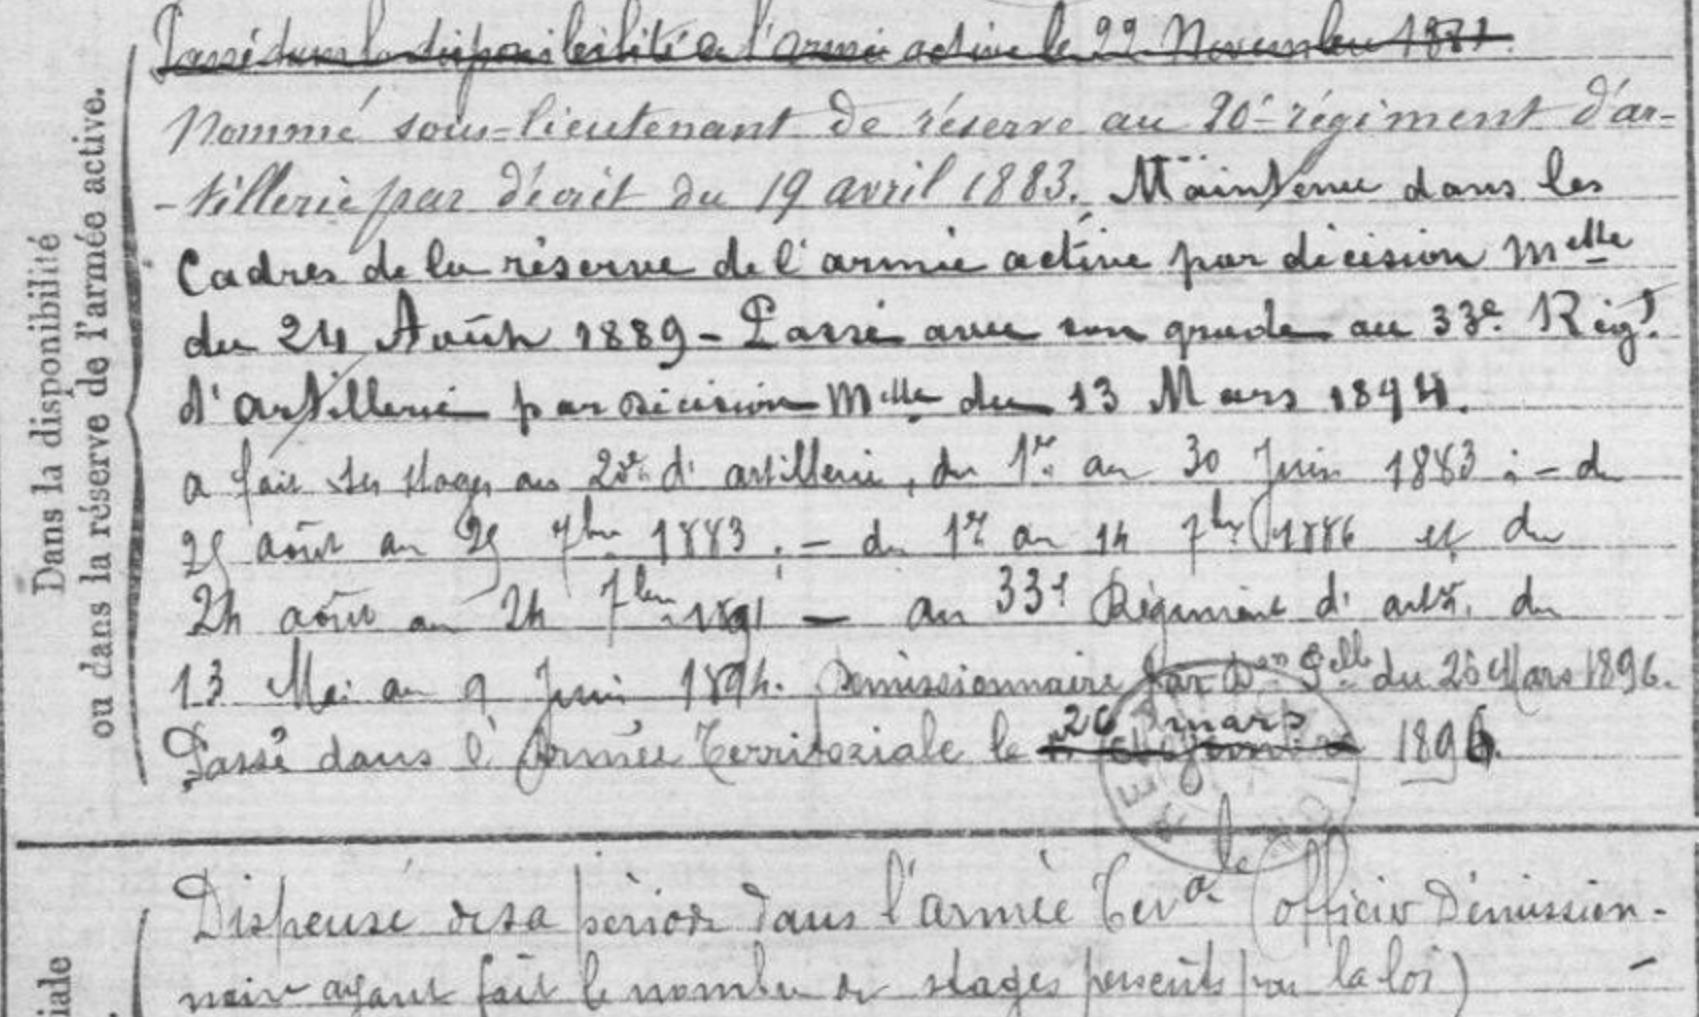 Dans la disponibilité
ou dans la réserve de l'armée active.
Passé dans la disponibilité de l'armée active le 22 Novembre 1881.
Nommé sous-lieutenant de réserve au 20e régiment d'ar-
-tillerie par décret du 19 avril 1883. Maintenu dans les
Cadres de la réserve de l'armée active par décision Melle
du 24 Août 1889 - Passé avec son grade au 33e Régt
d'artillerie par décision Melle du 13 Mars 1894.
a fait ses stages au 20e d'artillerie, du 1er au 30 Juin 1883 ; - du
25 août au 25 7bre 1883. - du 1er au 14 7bre 1886 et du
24 août au 24 7bre 1891 - au 33e Régiment d'artie. du
13 Mai au 9 Juin 1894. Démissionnaire par Don Pelle du 26 Mars 1896.
Passé dans l'Armée Territoriale le 26 mars 1896.
Dispensé de sa période dans l'armée Terale (officier Démission-
naire ayant fait le nombre de stages prescrits par la loi)
iale